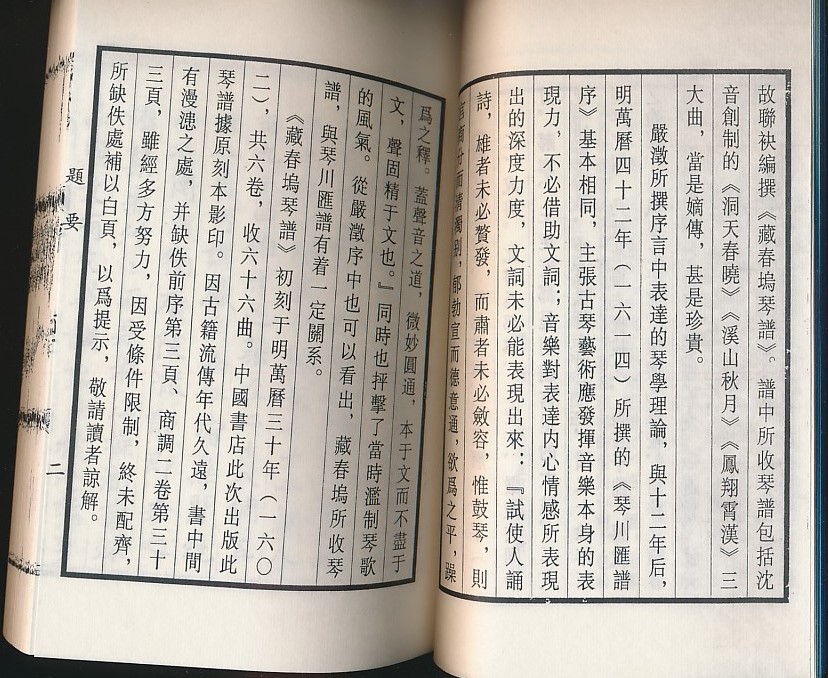 故聯袂編撰《藏春塢琴譜》。譜中所收琴譜包括沈
音創制的《洞天春曉》《溪山秋月》《鳳翔霄漢》三
大曲，當是嫡傳，甚是珍貴。
嚴澂所撰序言中表達的琴學理論，與十二年后，
明萬曆四十二年（一六一四）所撰的《琴川匯譜
序》基本相同，主張古琴藝術應發揮音樂本身的表
現力，不必借助文詞；音樂對表達内心情感所表現
出的深度力度，文詞未必能表現出來：『試使人誦
詩，雄者未必贅發，而肅者未必斂容，惟鼓琴，則
宮商分而清濁別，郁勃宣而德意通，欲爲之平，躁
爲之釋。蓋聲音之道，微妙圓通，本于文而不盡于
文，聲固精于文也。』同時也抨擊了當時濫制琴歌
的風氣。從嚴澂序中也可以看出，藏春塢所收琴
譜，與琴川匯譜有着一定關系。
《藏春塢琴譜》初刻于明萬曆三十年（一六〇
二），共六卷，收六十六曲。中國書店此次出版此
琴譜據原刻本影印。因古籍流傳年代久遠，書中間
有漫漶之處，并缺佚前序第三頁、商調二卷第三十
三頁，雖經多方努力，因受條件限制，終未配齊，
所缺佚處補以白頁，以爲提示，敬請讀者諒解。
題要
二